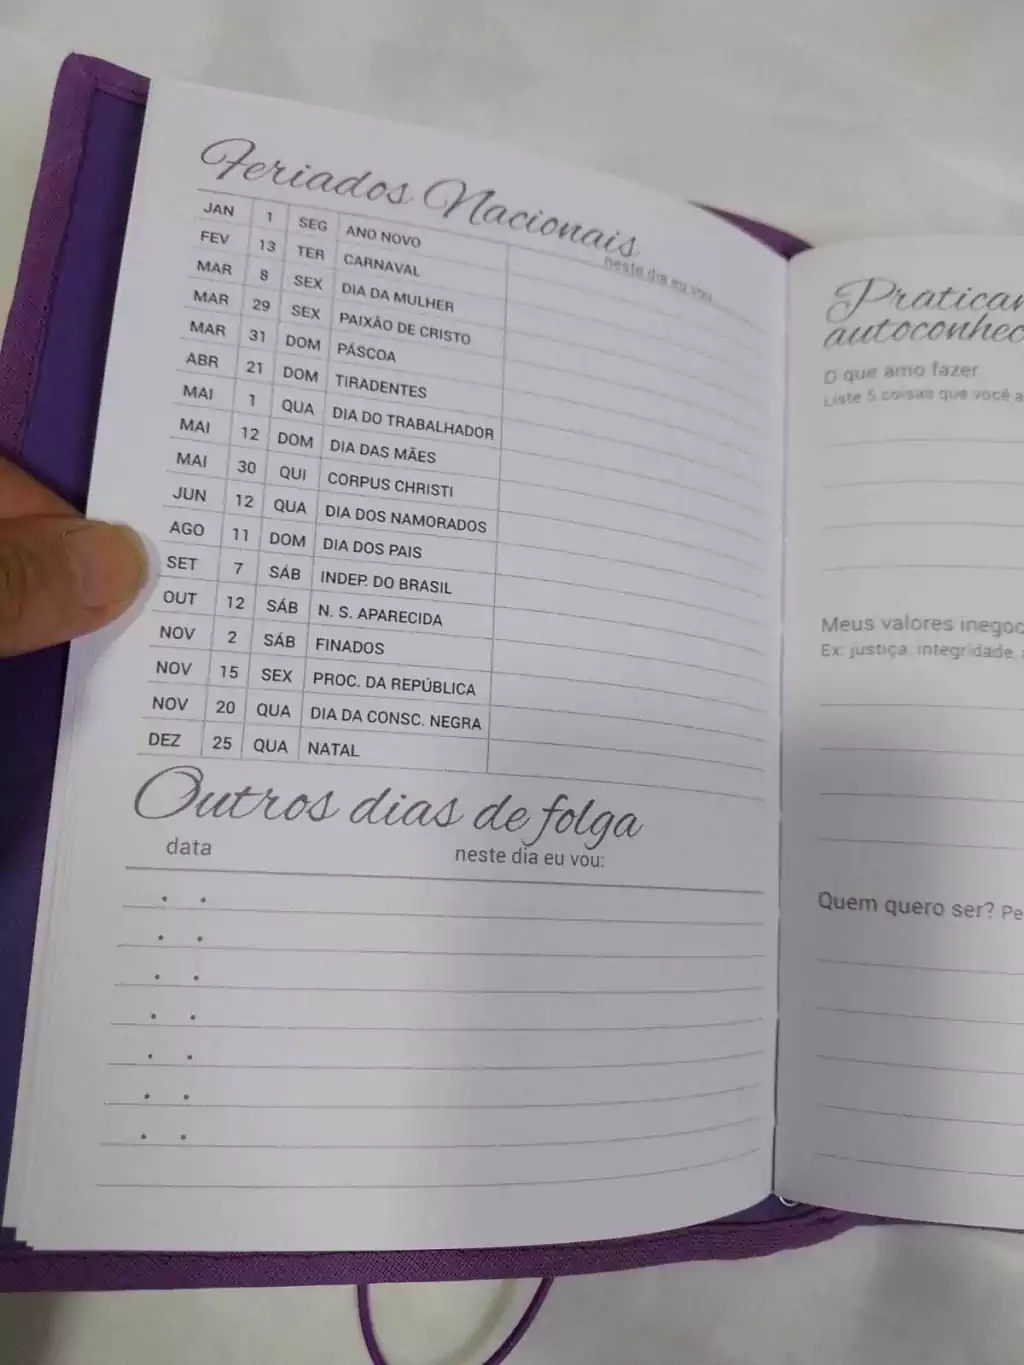 Feriados Nacionais
neste dia eu vou:
JAN 1 SEG ANO NOVO
FEV 13 TER CARNAVAL
MAR 8 SEX DIA DA MULHER
MAR 29 SEX PAIXÃO DE CRISTO
MAR 31 DOM PÁSCOA
ABR 21 DOM TIRADENTES
MAI 1 QUA DIA DO TRABALHADOR
MAI 12 DOM DIA DAS MÃES
MAI 30 QUI CORPUS CHRISTI
JUN 12 QUA DIA DOS NAMORADOS
AGO 11 DOM DIA DOS PAIS
SET 7 SÁB INDEP. DO BRASIL
OUT 12 SÁB N. S. APARECIDA
NOV 2 SÁB FINADOS
NOV 15 SEX PROC. DA REPÚBLICA
NOV 20 QUA DIA DA CONSC. NEGRA
DEZ 25 QUA NATAL
Outros dias de folga
data neste dia eu vou:
Pratican
autoconhec
O que amo fazer
Liste 5 coisas que você a
Meus valores inegoc
Ex: justiça, integridade,
Quem quero ser? Pe